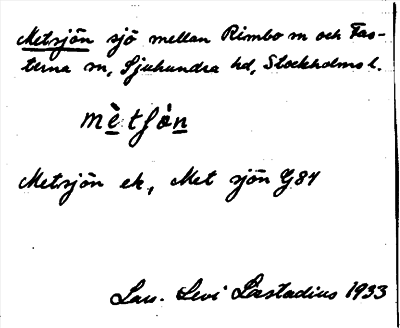 Metsjön sjö mellan Rimbo sn och Fas-
terna sn, Sjuhundra hd, Stockholms l.
mètʃön
Metsjön ek, Met sjön G84
Lars-Levi Læstadius 1933